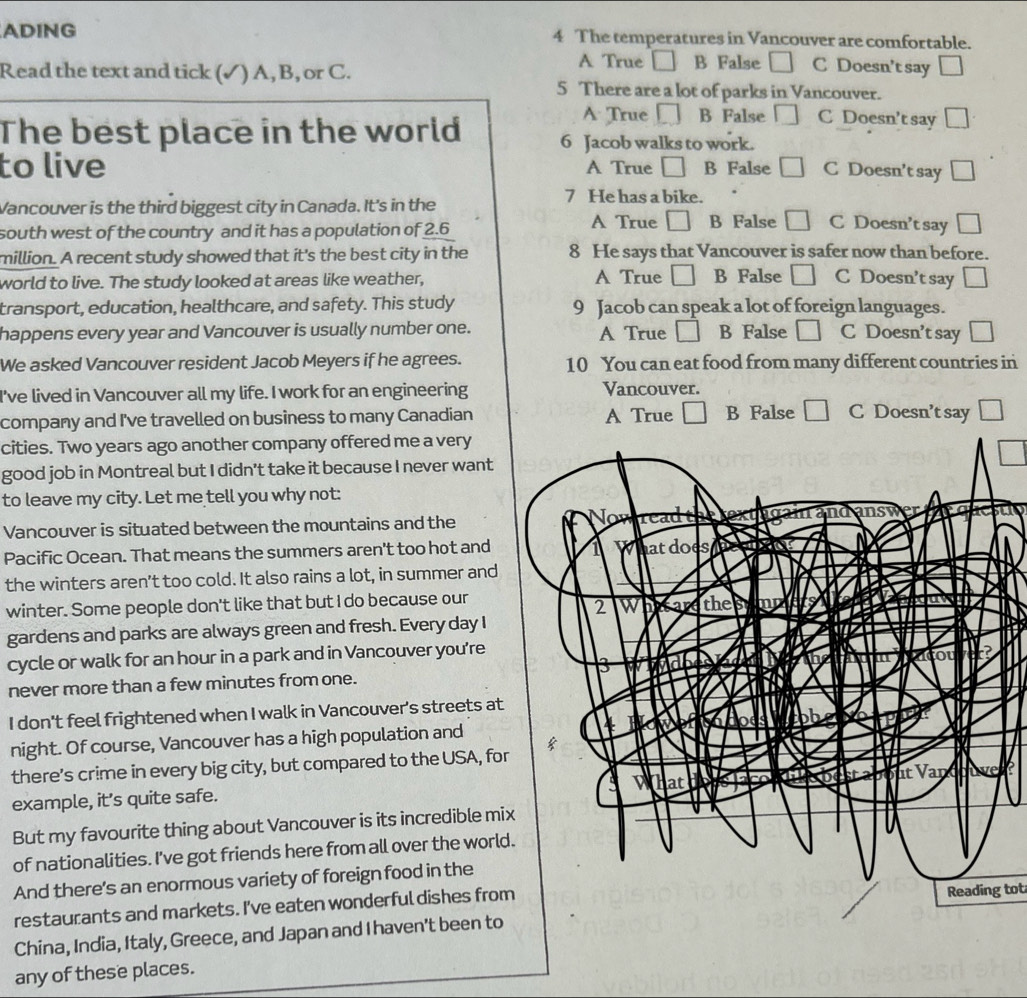 ADING
Read the text and tick (✓) A, B, or C.
The best place in the world
to live
Vancouver is the third biggest city in Canada. It's in the
south west of the country and it has a population of 2.6
million. A recent study showed that it's the best city in the
world to live. The study looked at areas like weather,
transport, education, healthcare, and safety. This study
happens every year and Vancouver is usually number one.
We asked Vancouver resident Jacob Meyers if he agrees.
I've lived in Vancouver all my life. I work for an engineering
company and I've travelled on business to many Canadian
cities. Two years ago another company offered me a very
good job in Montreal but I didn't take it because I never want
to leave my city. Let me tell you why not:
Vancouver is situated between the mountains and the
Pacific Ocean. That means the summers aren't too hot and
the winters aren't too cold. It also rains a lot, in summer and
winter. Some people don't like that but I do because our
gardens and parks are always green and fresh. Every day I
cycle or walk for an hour in a park and in Vancouver you're
never more than a few minutes from one.
I don't feel frightened when I walk in Vancouver's streets at
night. Of course, Vancouver has a high population and
there's crime in every big city, but compared to the USA, for
example, it's quite safe.
But my favourite thing about Vancouver is its incredible mix
of nationalities. I've got friends here from all over the world.
And there's an enormous variety of foreign food in the
restaurants and markets. I've eaten wonderful dishes from
China, India, Italy, Greece, and Japan and I haven't been to
any of these places.
4 The temperatures in Vancouver are comfortable.
A True □ B False □ C Doesn't say □
5 There are a lot of parks in Vancouver.
A True □ B False □ C Doesn't say □
6 Jacob walks to work.
A True □ B False □ C Doesn't say □
7 He has a bike.
A True □ B False □ C Doesn't say □
8 He says that Vancouver is safer now than before.
A True □ B False □ C Doesn't say □
9 Jacob can speak a lot of foreign languages.
A True □ B False □ C Doesn't say □
10 You can eat food from many different countries in
Vancouver.
A True □ B False □ C Doesn't say □
Now read the text again and answer the questio
1 What does
2 What are the summers
3
4 How often does Jacob go to a park?
5 What does Jacob like best about Vancouver?
Reading tota